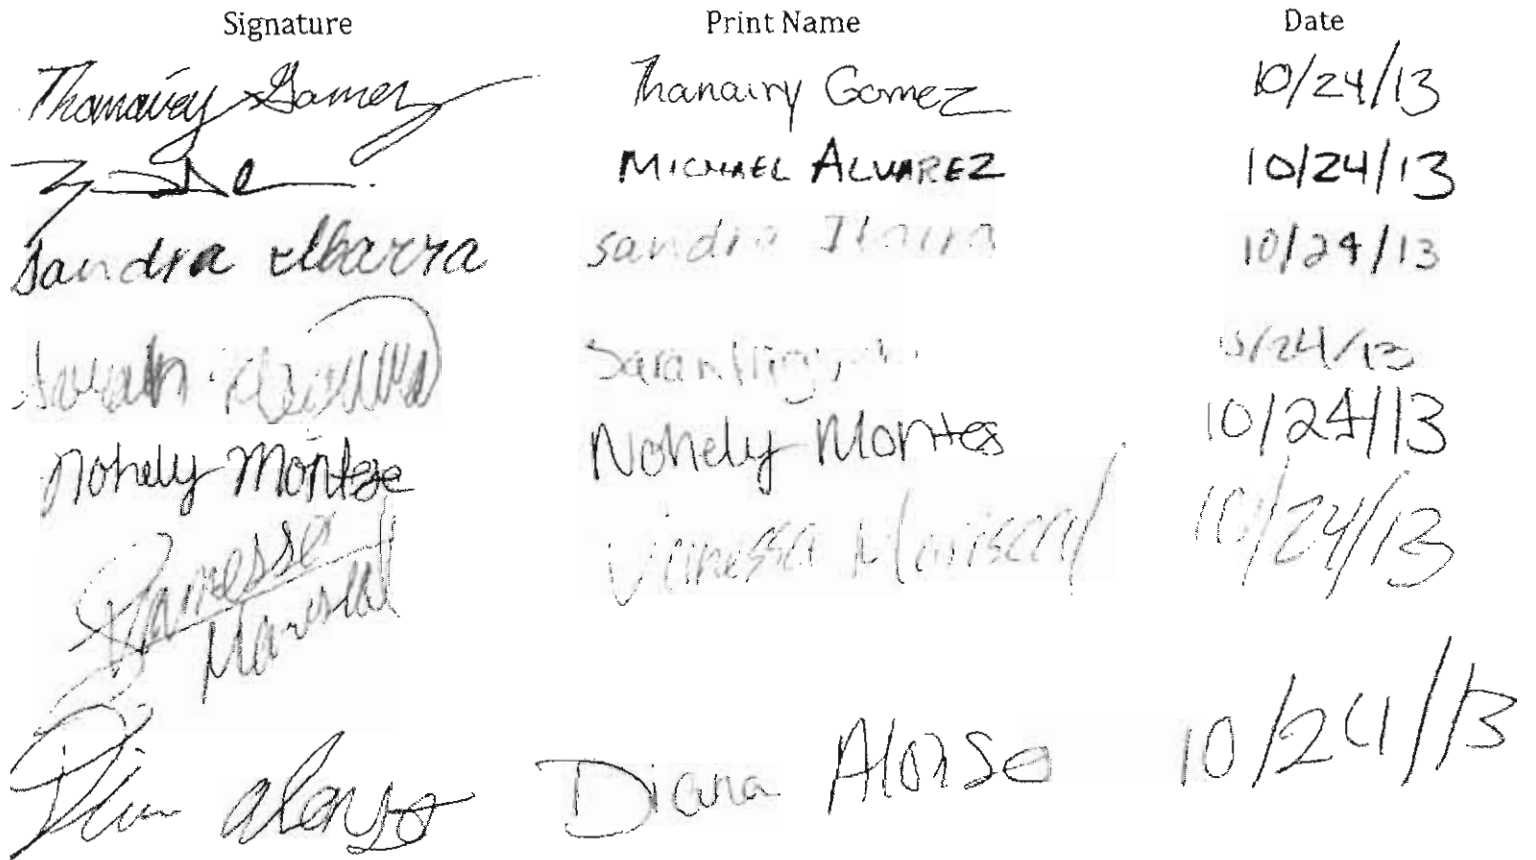 Signature Print Name Date
Thanairy Gomez Thanairy Gomez 10/24/13
MICHAEL ALVAREZ 10/24/13
Sandra Ibarra Sandra Ibarra 10/24/13
Sarah Sarah /24/13
Nohely Montes Nohely Montes 10/24/13
Vanessa Vanessa Mariscal 10/24/13
Mariscal
Diana Alonso Diana Alonso 10/24/13